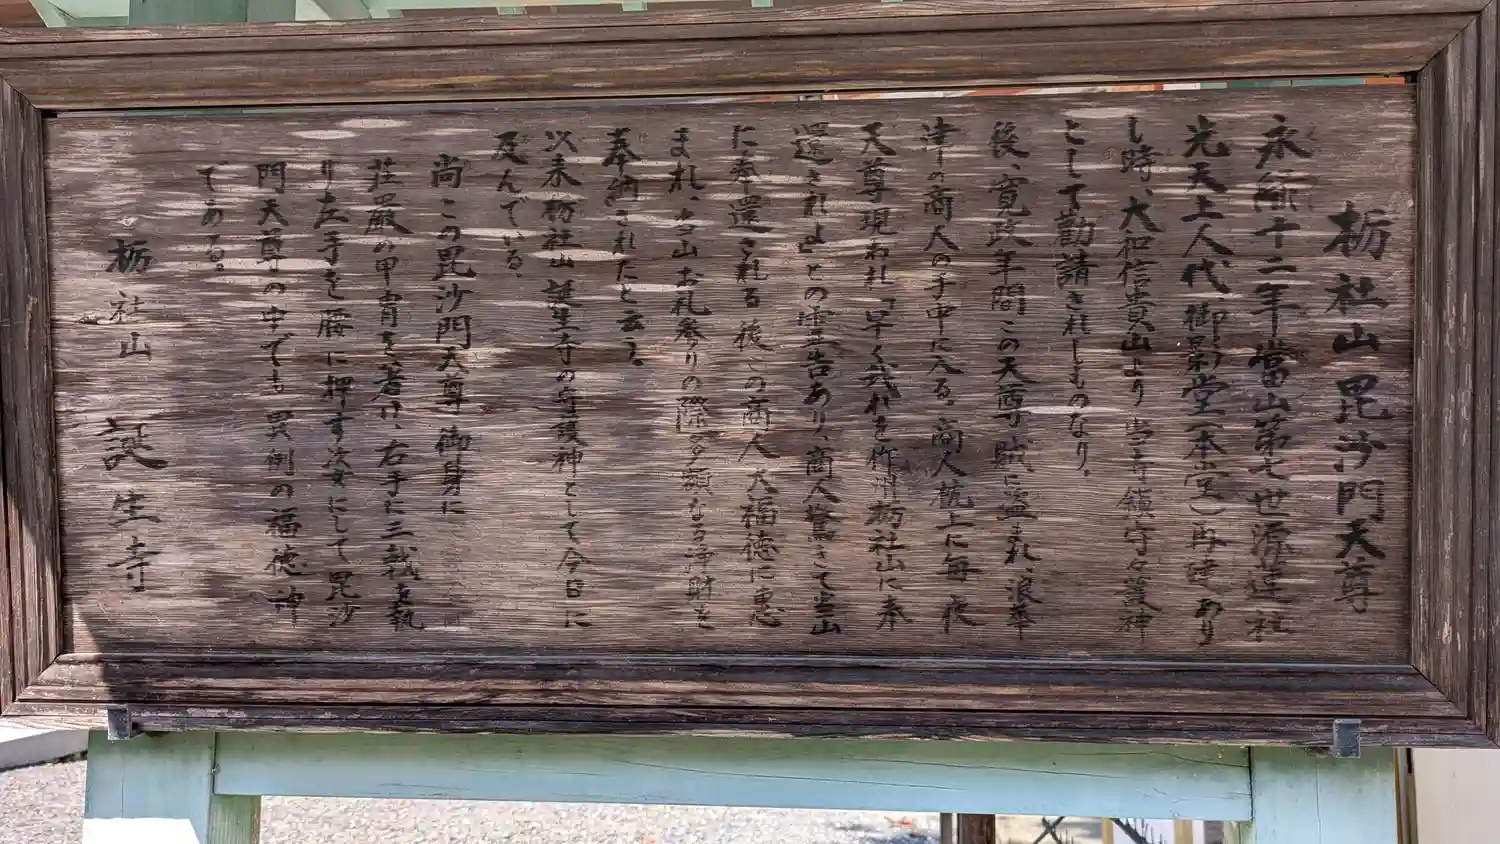 栃社山毘沙門天尊
永禄十二年當山第七世源蓮社
光天上人代、御影堂(本堂)再建あり
し時、大和信貴山より当寺鎮守々護神
として勧請されしものなり。
後、寛政年間この天尊賊に盗まれ、浪華
津の商人の手中に入る。商人枕上に毎夜
天尊現われ「早く我れを作州栃社山に奉
還されよ」との霊告あり、商人驚きて当山
に奉還さる。後この商人大福徳に恵
まれ、当山お礼参りの際多額なる浄財を
奉納されたと云う。
以来栃社山誕生寺の守護神として今日に
及んでいる。
尚この毘沙門天尊御身に
荘厳の甲冑を着け、右手に三戟を執
り左手を腰に押す姿にして毘沙
門天尊の中でも異例の福徳神
である。
栃社山 誕生寺